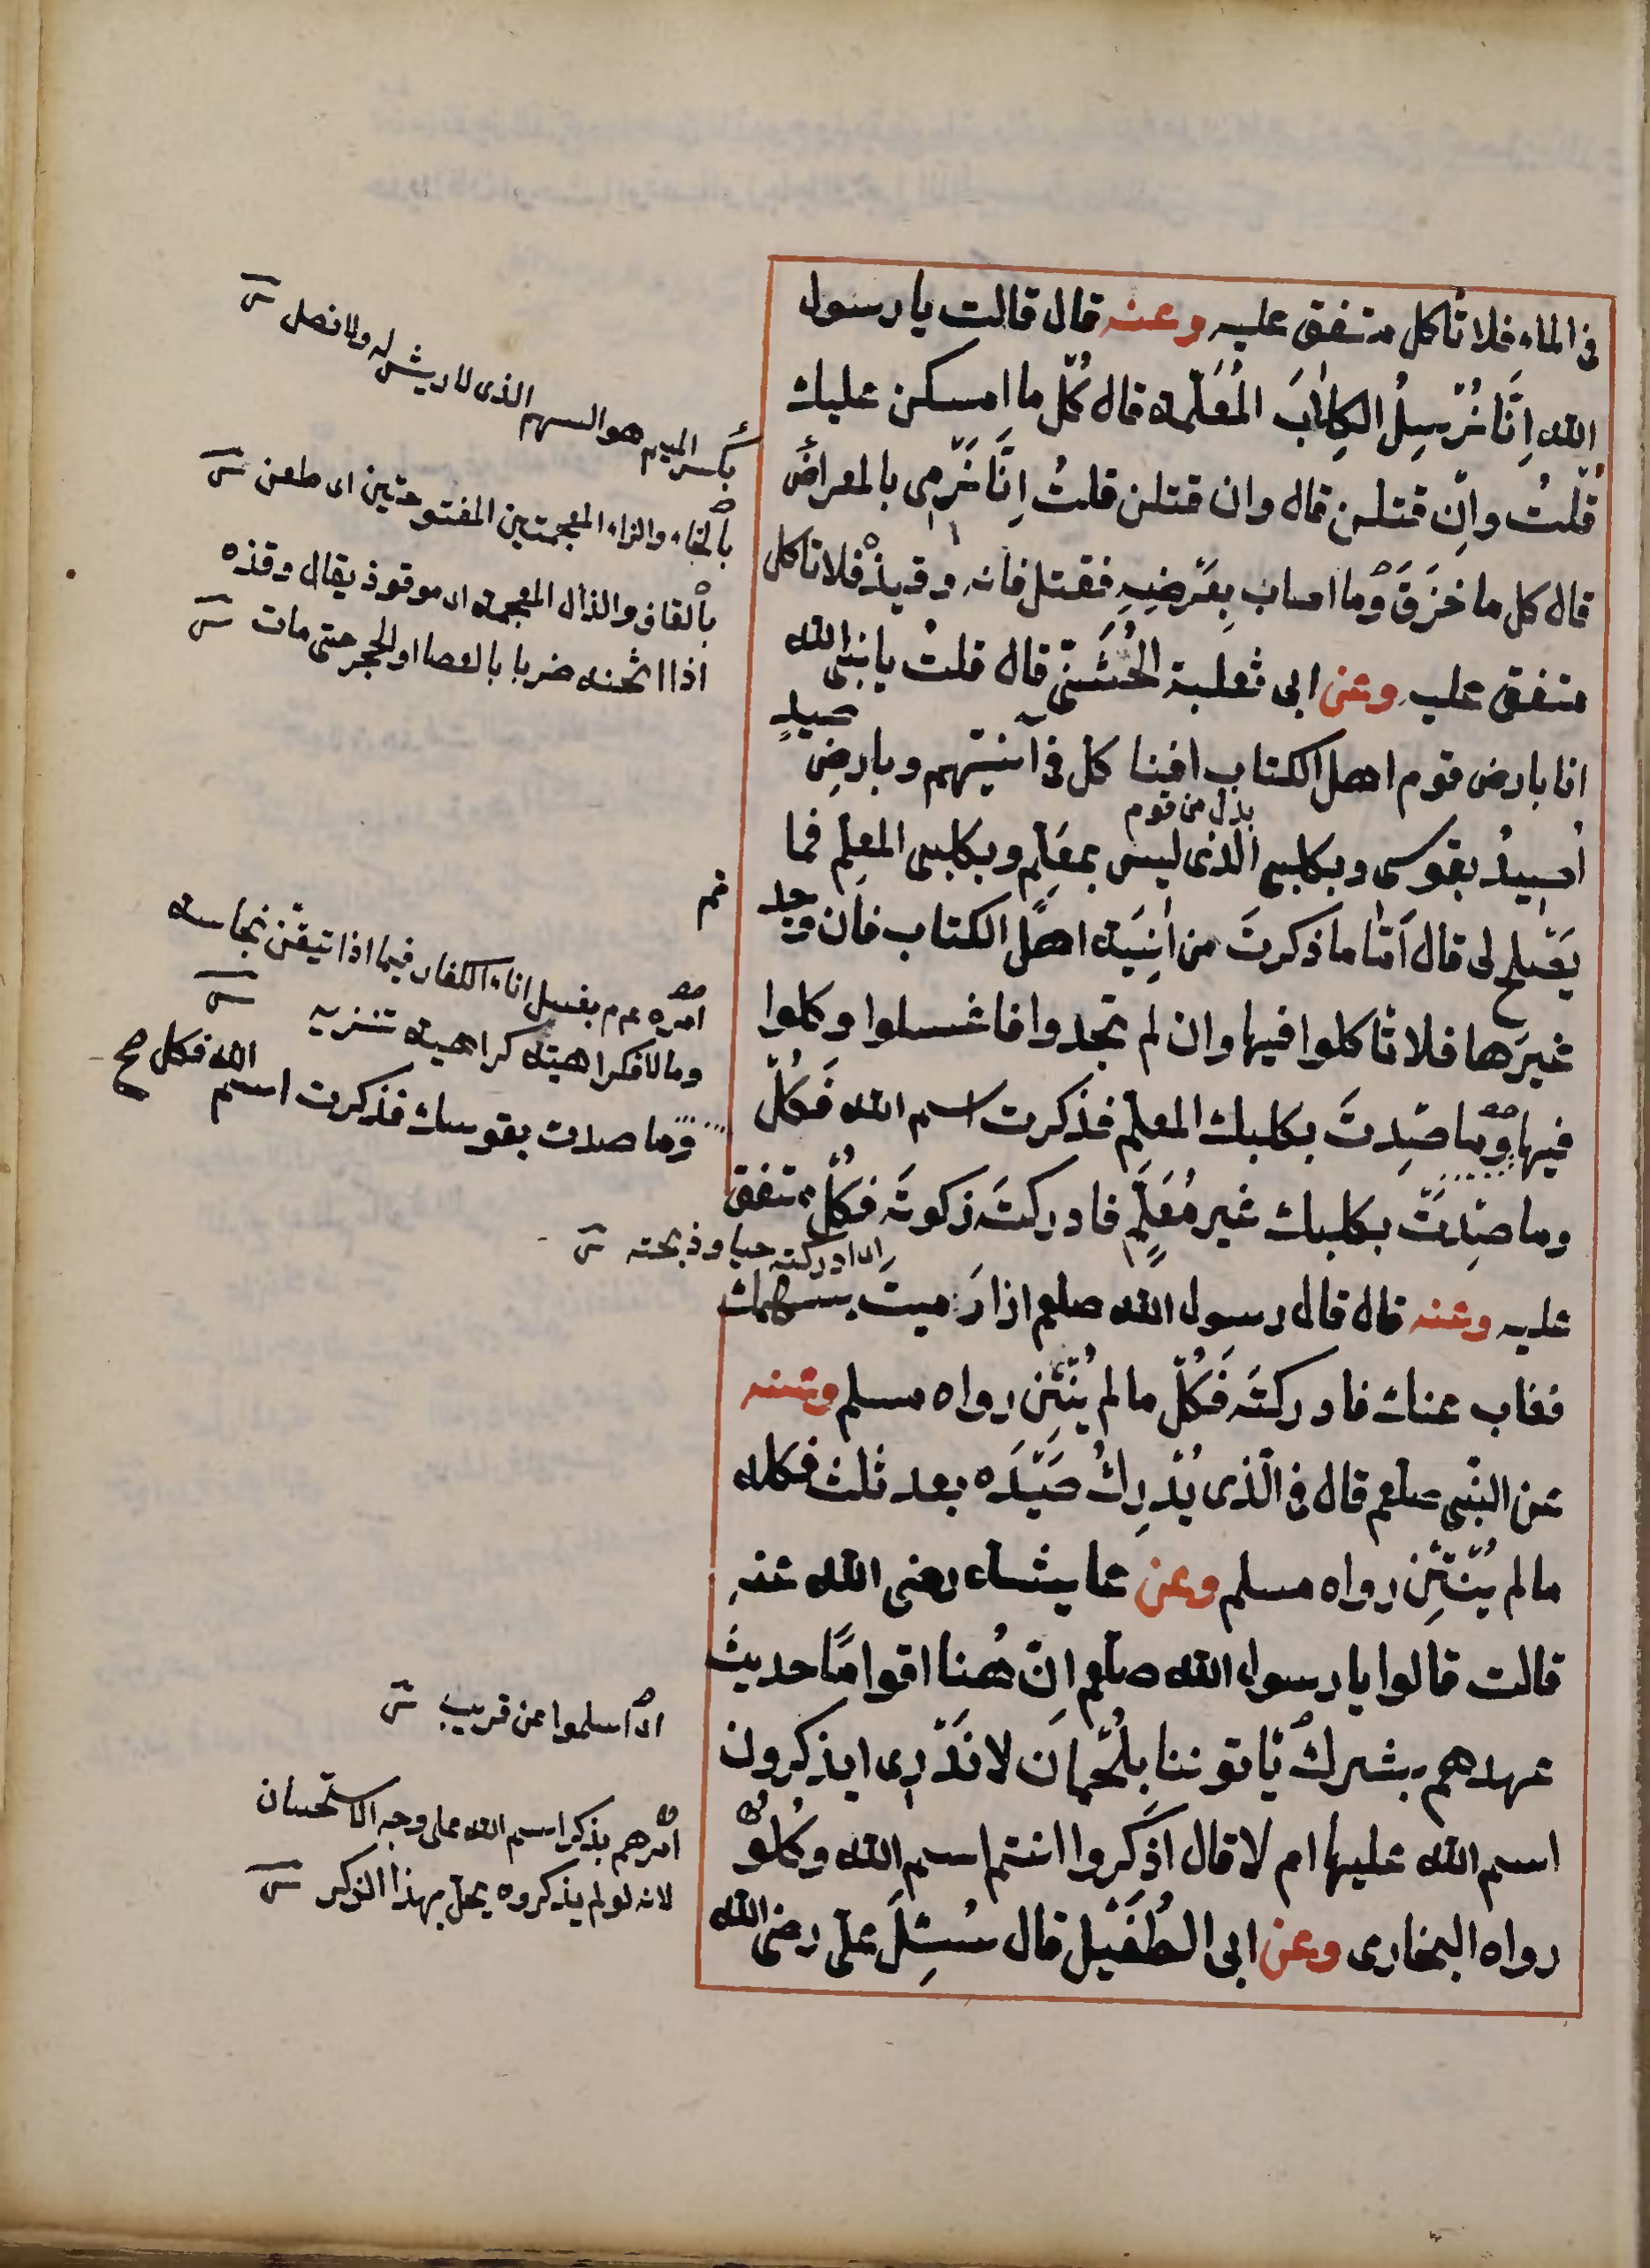 فى الماء فلا تأكل متفق عليه وعنه قال قالت يا رسول
الله اِنَّا نُرْسِلُ الكِلابَ المُعَلَّمة قال كُلْ ما امسكن عليك
قلتُ وانِ قتلن قال وان قتلن قلتُ اِنَّا نَرْمِى بالمعراض
قال كل ما خزَقَ وما اصاب بِعَرْضِهِ فقتل فانه وقيذٌ فلا تأكل
متفق عليه وعن ابى ثعلبة الخُشَنِىّ قال قلتُ يا نبى الله
انا بارض قوم اهل الكتاب افنا كل فى آنيتهم وبارضِ صيدٍ
اصيدُ بقوسى وبكلبى الذى ليس بمعَلَّمٍ وبكلبى المعلم فما
بدل من قوم
يَصْلح لى قال اَمّا ما ذكرتَ من اٰنِيَة اهل الكتاب فان وجد تم
غيرَها فلا تأكلوا فيها وان لم تجدوا فاغسلوا وكلوا
فيها وما صِدتَ بكلبك المعلّم فذكرت اسم الله فَكُلْ
وما صِدتَ بكلبك غير مُعَلَّمٍ فادركتَ زكوتَه فكُلْ متفق
عليه وعنه قال قال رسول الله صلعم اذا رَميتَ بسهمك
فغاب عنك فادركتَه فَكُلْ ما لم يُنْتِن رواه مسلم وعنه
عن النبى صلعم قال فى الّذى يُدْرِكُ صَيْدَه بعد ثلث فكله
ما لم يُنْتِن رواه مسلم وعن عايشة رضى الله عنه
قالت قالوا يا رسول الله صلعم انّ هُنا اقوامًا حديثَ
عهدهم بشرك يأتوننا بلُحْمانَ لا نَدْرِى ايذكرون
اسم الله عليها ام لا قال اذكروا انتم اسم الله وكُلُوْ
رواه البخارى وعن ابى الطُفَيْل قال سُئِلَ علىّ رضى الله
بكسر الميم هو السهم الذى لا ريش له ولا نصل
بالخاء والزاء المعجمتين المفتوحتين اى طعن
بالقاف والذال المعجمة اى موقوذ يقال وقذه
اذا اثخنه ضربا بالعصا او الحجر حتى مات
امره عم م بغسل اناء الكفار فيما اذا تيقن نجاسته
وما لا فكراهيته كراهية تنزيه
وما صدت بقوسك فذكرت اسم الله فكل صح
اى ادركته حيا وذبحته
اى اسلموا عن قريب
امرهم بذكر اسم الله على وجه الاستحسان
لانه لو لم يذكروه يحل بهذا الذكر